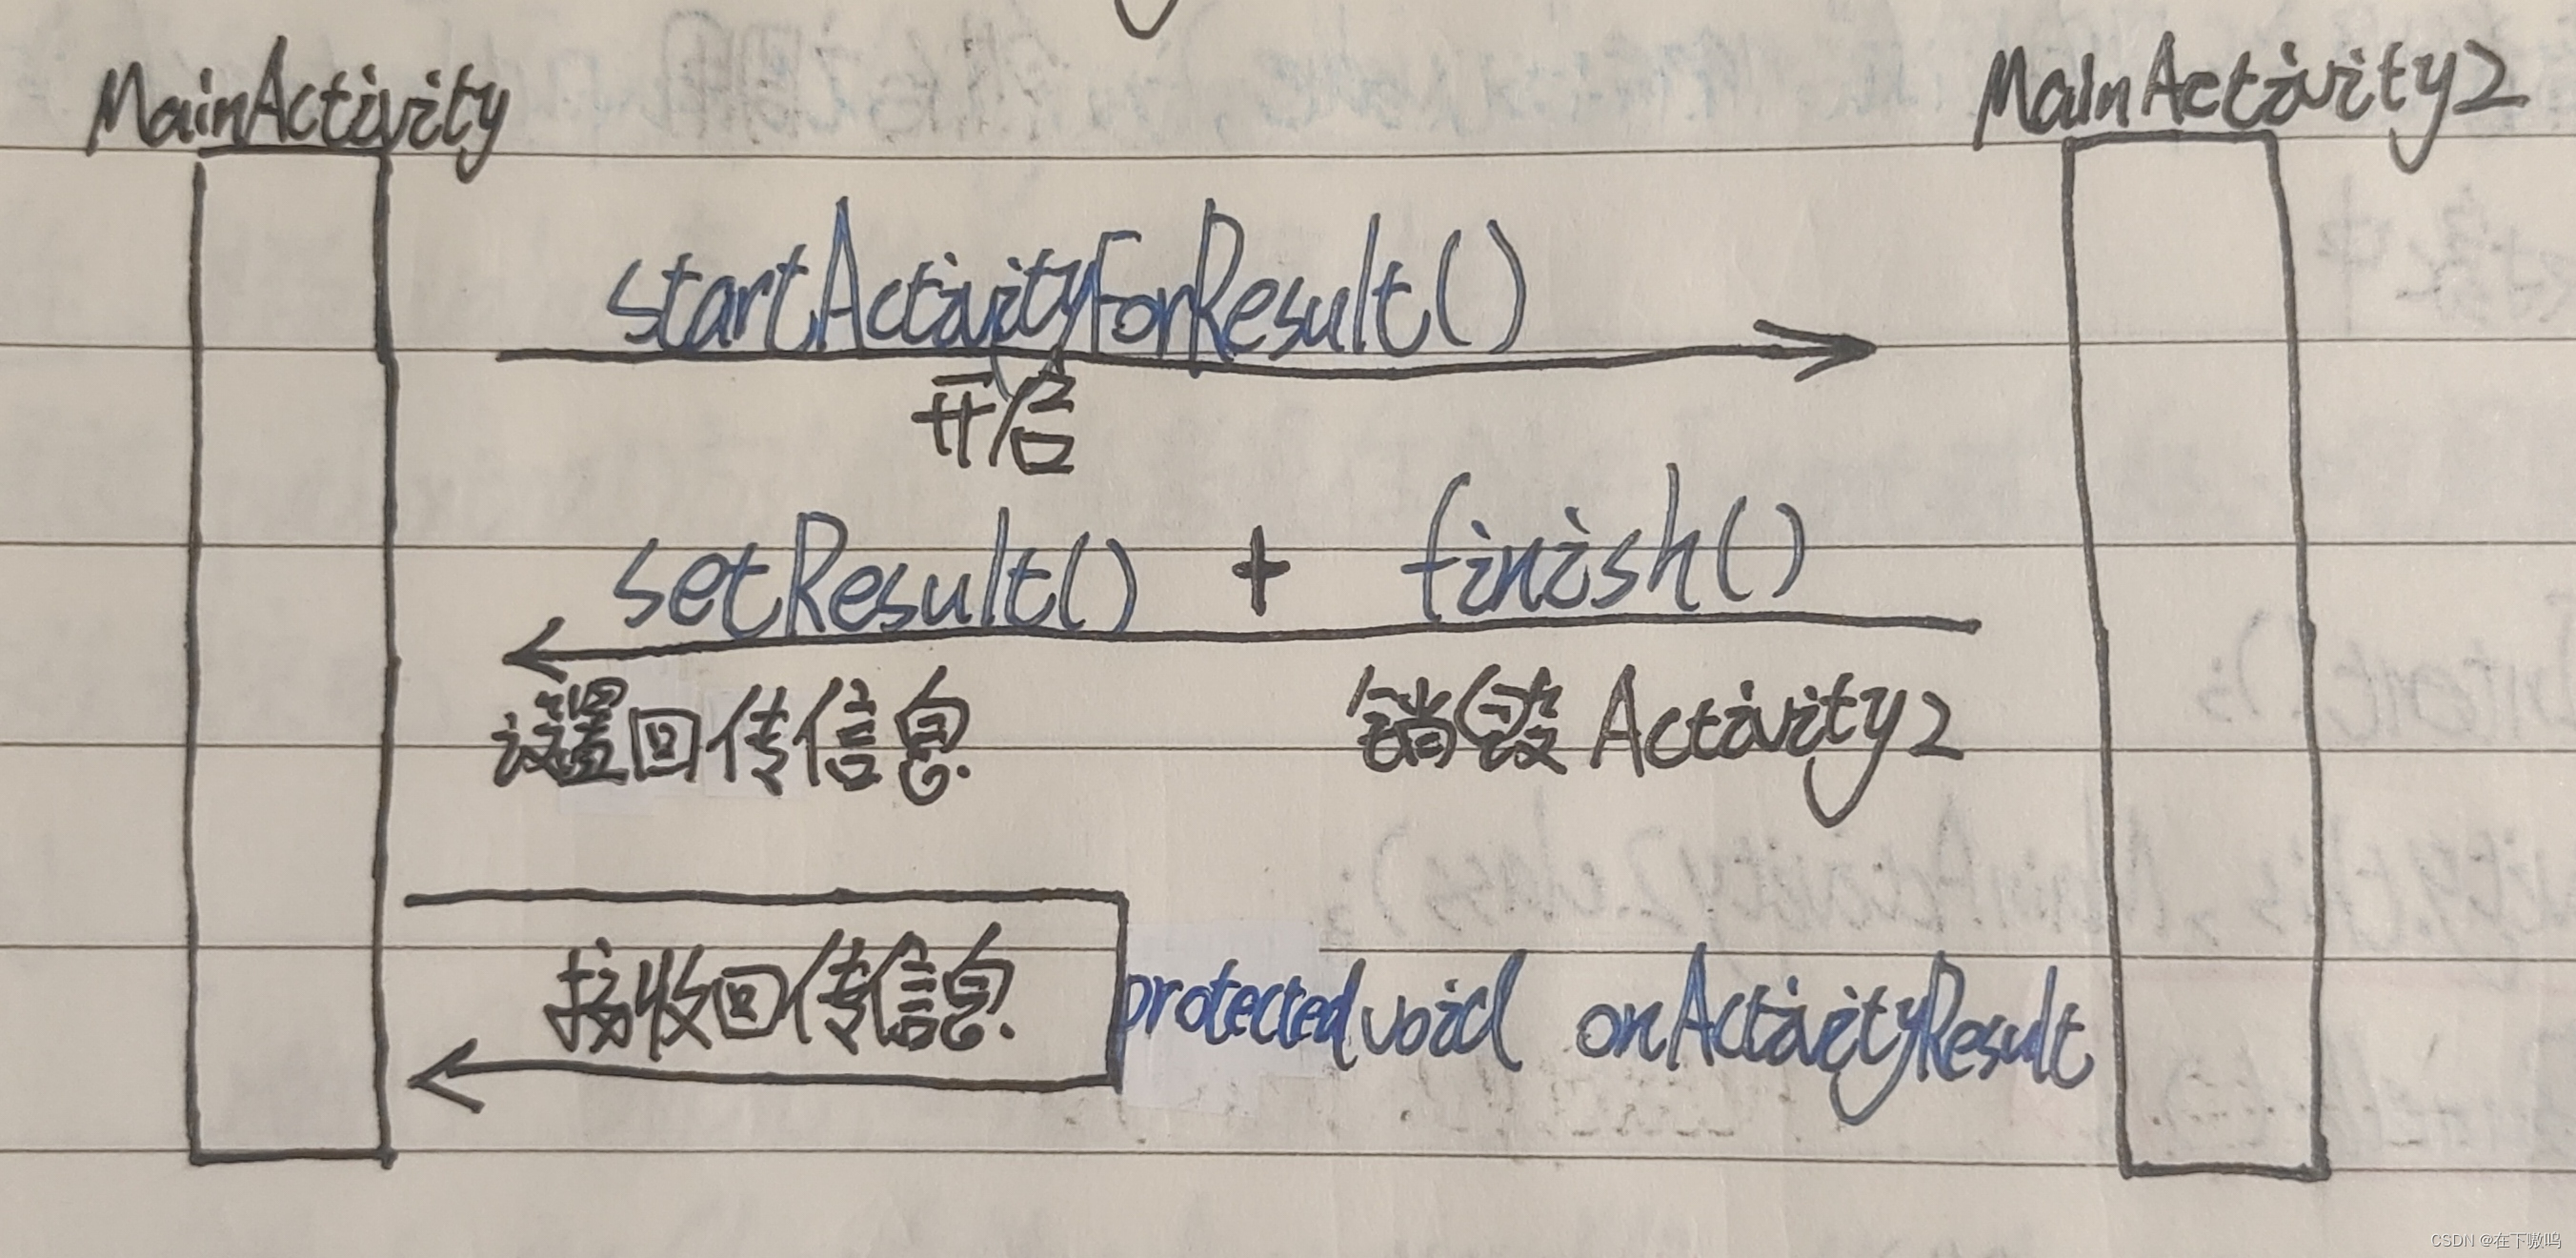 MainActivity MainActivity2
startActivityForResult()
开启
setResult() + finish()
设置回传信息 销毁Activity2
接收回传信息 protected void onActivityResult
CSDN @在下嗷呜